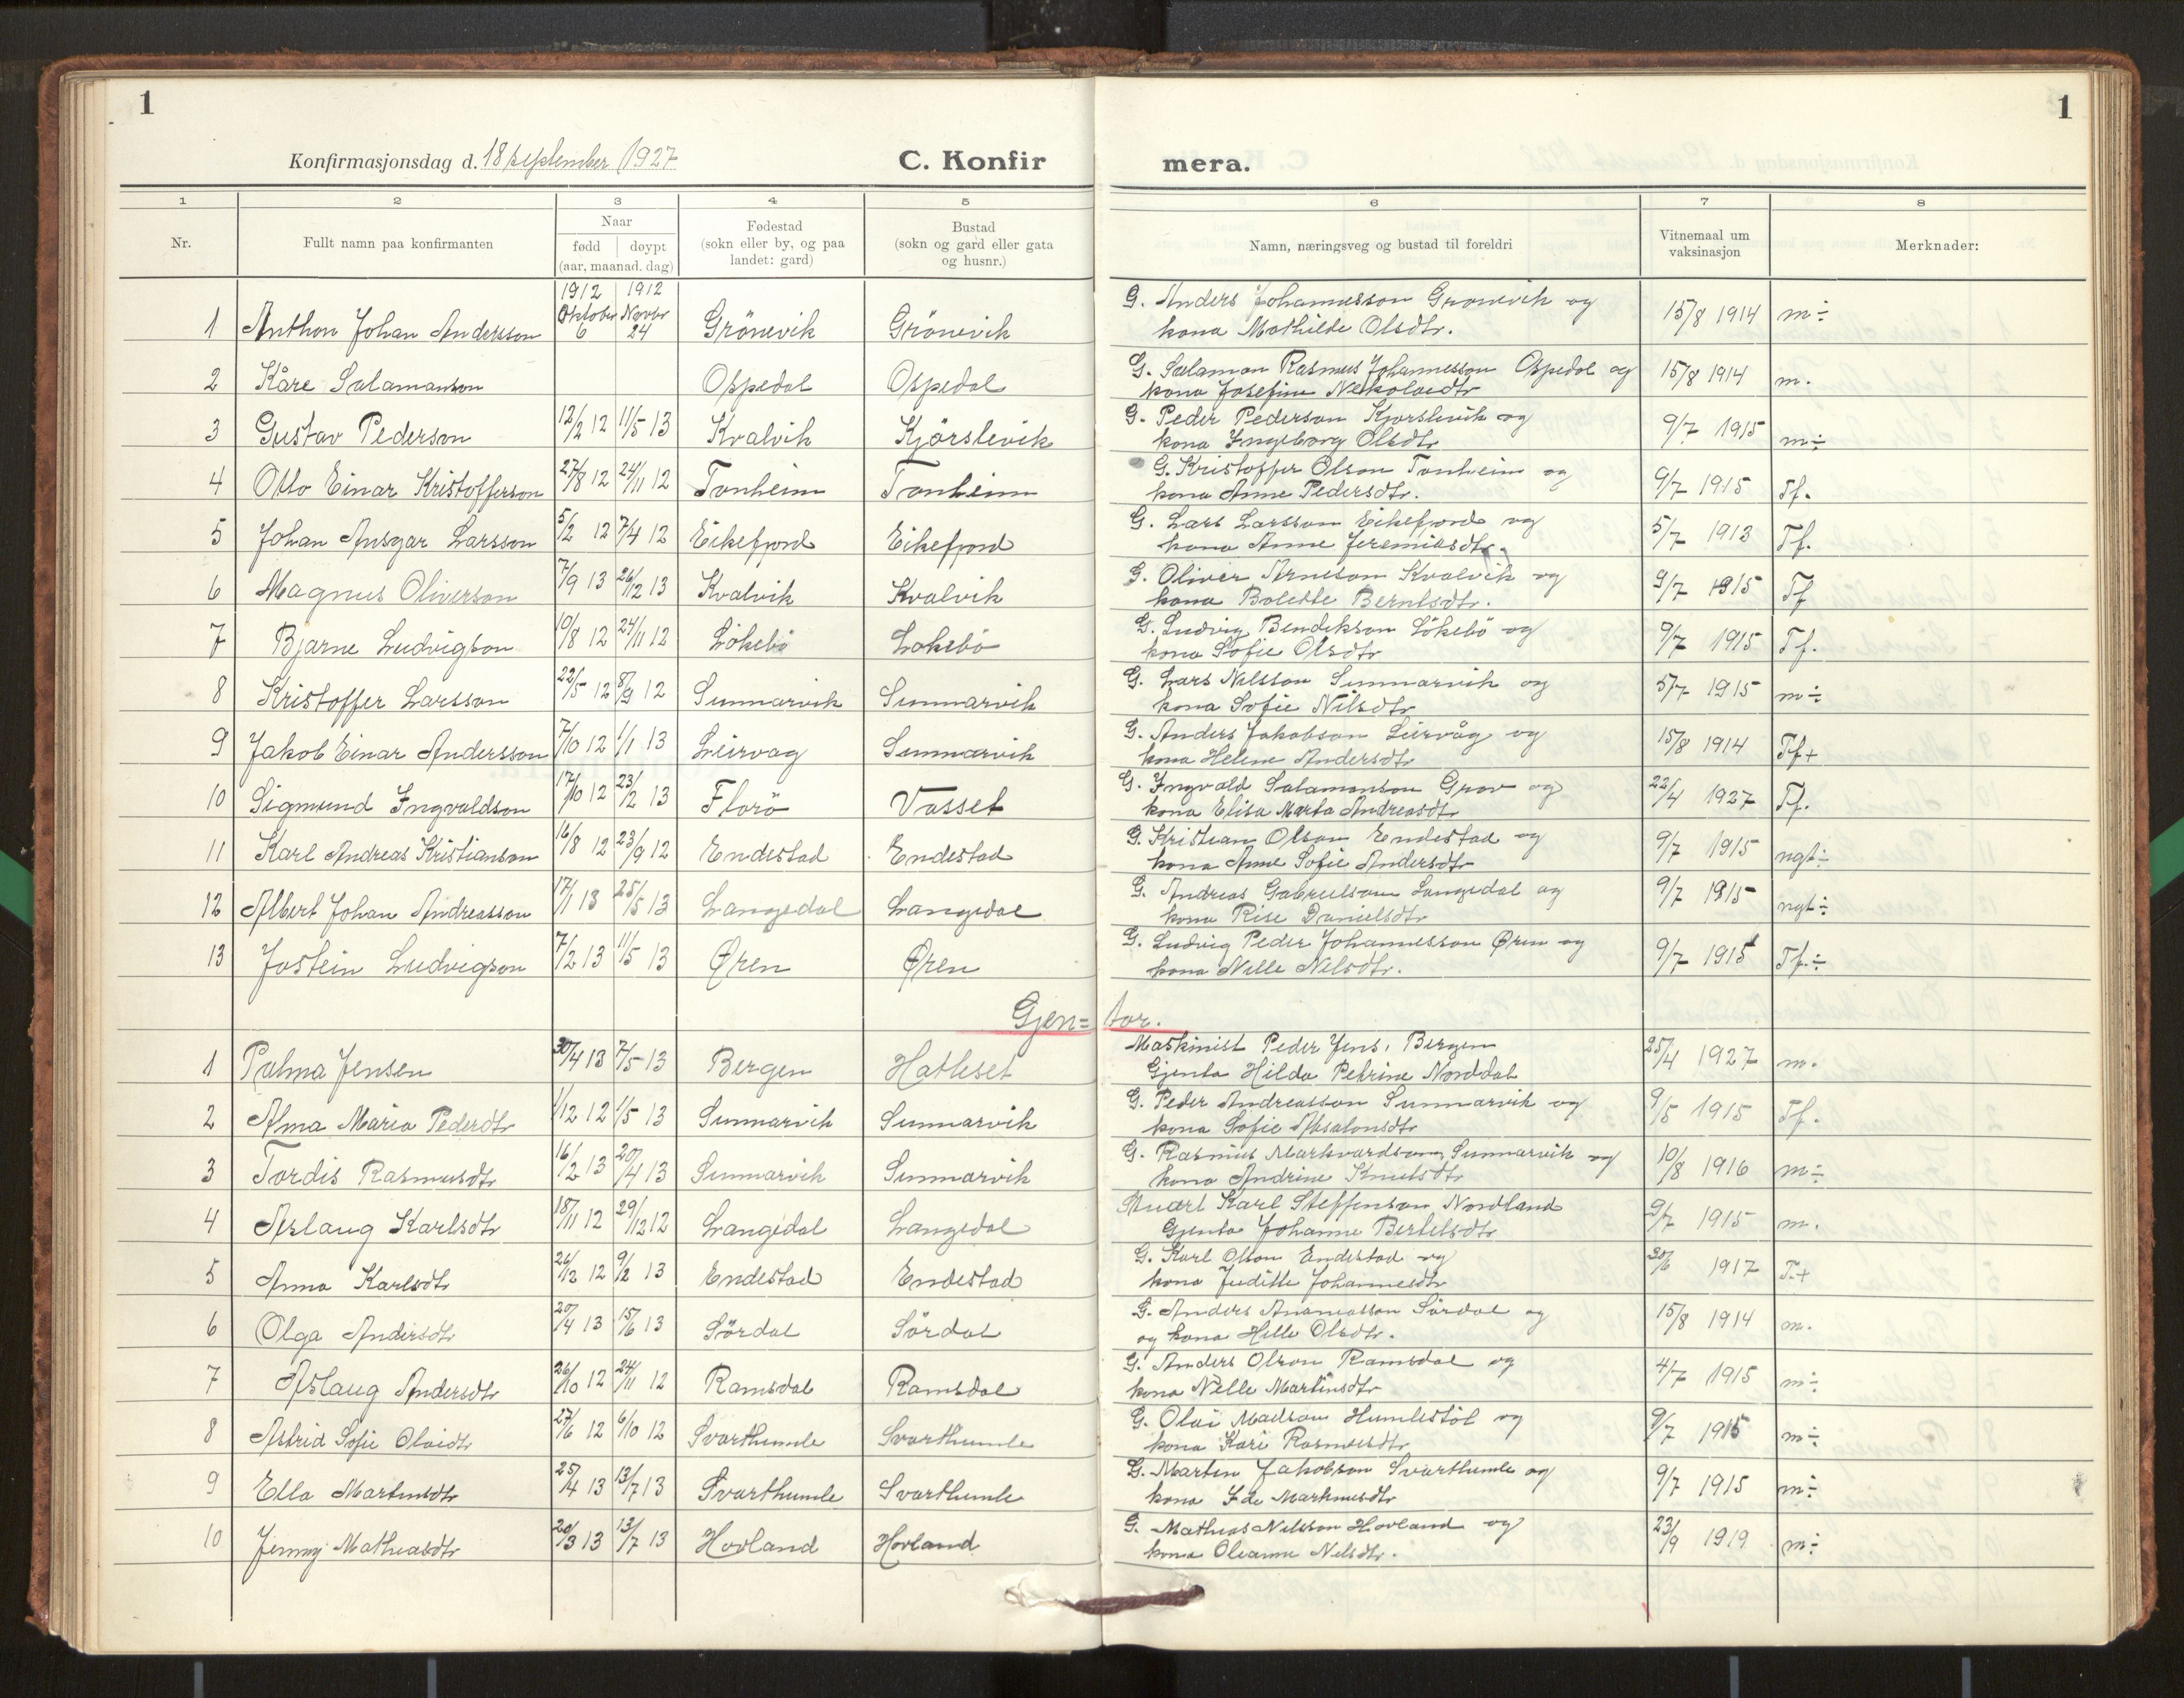 1
1
Konfirmasjonsdag d. 18 september 1927
C. Konfirmera.
1 2 3 4 5 6 7 8
Nr.
Fullt namn paa konfirmanten
Naar
fødd døypt
(aar, maanad. dag)
Fødestad
(sokn eller by, og paa
landet: gard)
Bustad
(sokn og gard eller gata
og husnr.)
Namn, næringsveg og bustad til foreldri
Vitnemaal um
vaksinasjon
Merknader:
1 Anthon Johan Andersson 1912 Oktober 6 1912 Novbr 24 Grönevik Grönevik G. Anders Johannesson Gronevik og
kona Mathilde Olsdtr. 15/8 1914 m÷
2 Kåre Salamonson Ospedal Ospedal G. Salamon Rasmus Johannesson Ospedal og
kona Josefine 15/8 1914 m.
3 Gustav Pederson 12/2 12 11/5 13 Kvalvik Kjörslevik G. Peder Pederson Kjorslevik og
kona Ingeborg Olsdtr 9/7 1915 m÷
4 Otto Einar Kristofferson 27/8 12 24/11 12 Tonheim Tonheim G. Kristoffer Olson Tonheim og
kona Anne Pedersdtr. 9/7 1915 Tf.
5 Johan Ansgar Larsson 5/2 12 7/4 12 Eikefjord Eikefjord G. Lars Larsson Eikefjord og
kona Anne Jeremiasdtr. 5/7 1913 Tf.
6 Magnus Oliverson 7/9 13 26/12 13 Kvalvik Kvalvik G. Oliver Arneson Kvalvik og
kona Bolette Berntsdtr. 9/7 1915 Tf
7 Bjarne Ludvigson 10/8 12 24/11 12 Lökebö Lokebö G. Ludvig Bendikson Lökebö og
kona Sofie Olsdtr 9/7 1915 Tf.
8 Kristoffer Larsson 22/5 12 8/9 12 Sunnarvik Sunnarvik G. Lars Nilsson Sunnarvik og
kona Sofie Nilsdtr 5/7 1915 m÷
9 Jakob Einar Andersson 7/10 12 1/1 13 Leirvag Sunnarvik G. Anders Jakobson Leirvåg og
kona Helene Andersdtr 15/8 1914 Tf+
10 Sigmund Ingvaldson 17/10 12 23/2 13 Florö Vasset G. Ingvald Salamonson Grov og
kona Elisa Marta Andreasdtr 22/4 1927 Tf.
11 Karl Andreas Kristianson 16/8 12 23/9 12 Endestad Endestad G. Kristian Olson Endestad og
kona Anne Sofie Andersdtr 9/7 1915 ngt÷
12 Albert Johan Andreasson 17/1 13 25/5 13 Langedal Langedal G. Andreas Gabrielson Langedal og
kona Rise Danielsdtr 9/7 1915 ngt÷
13 Jostein Ludvigson 7/2 13 11/5 13 Øren Øren G. Ludvig Peder Johannesson Øren og
kona Nille Nilsdtr. 9/7 1915 Tf.÷
Gjen= tor.
1 Palma Jensen 30/4 13 7/5 13 Bergen Hatleset Maskinist Peder Jens. Bergen
Gjenta Hilda Petrine Norddal 25/4 1927 m.
2 Alma Maria Pederdtr 1/12 12 1/5 13 Sunnarvik Sunnarvik G. Peder Andreasson Sunnarvik og
kona Sofie Absalonsdtr 9/5 1915 Tf.
3 Tordis Rasmusdtr 16/2 13 20/4 13 Sunnarvik Sunnarvik G. Rasmus Markvardson Sunnarvik og
kona Andrine Knutsdtr 10/8 1916 m÷
4 Aslaug Karlsdtr 18/11 12 29/12 12 Langedal Langedal Karl Steffenson Nordland
Gjenta Johanne Bertelsdtr 9/7 1915 m.
5 Anna Karlsdtr 26/12 12 9/2 13 Endestad Endestad G. Karl Olson Endestad og
kona Juditte Johannesdtr 30/6 1917 T.+
6 Olga Andersdtr 20/4 13 15/6 13 Sördal Sördal G. Anders Ananiasson Sördal og
og kona Hille Olsdtr. 15/8 1914 m.
7 Aslaug Andersdtr 26/10 12 24/11 12 Ramsdal Ramsdal G. Anders Olson Ramsdal og
kona Nille Martinsdtr 4/7 1915 m÷
8 Astrid Sofie Olaidtr 27/6 12 6/10 12 Svarthumle Svarthumle G. Olai Madson Humlestöl og
kona Kari Rasmusdtr 9/7 1915 m÷
9 Ella Martinsdtr 25/4 13 13/7 13 Svarthumle Svarthumle G. Martin Jakobson Svarthumle og
kona Ida Markusdtr 9/7 1915 m÷
10 Jenny Mathiasdtr 20/3 13 13/7 13 Hovland Hovland G. Mathias Nilsson Hovland og
kona Oleanne Nilsdtr. 23/9 1919 m÷